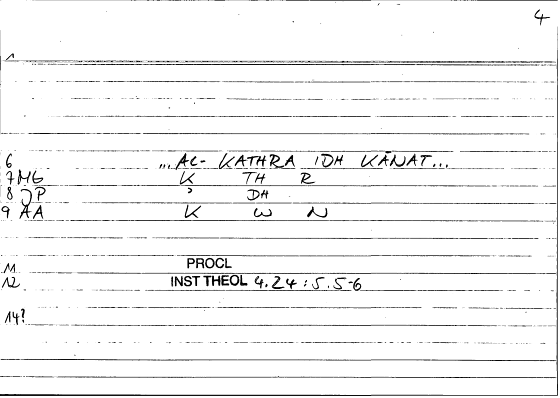 4
1
6 ... AL- KATHRA IDH KĀNAT...
7 MG K TH R
8 JP ' DH
9 AA K W N
11 PROCL
12 INST THEOL 4.24 : 5.5-6
14?